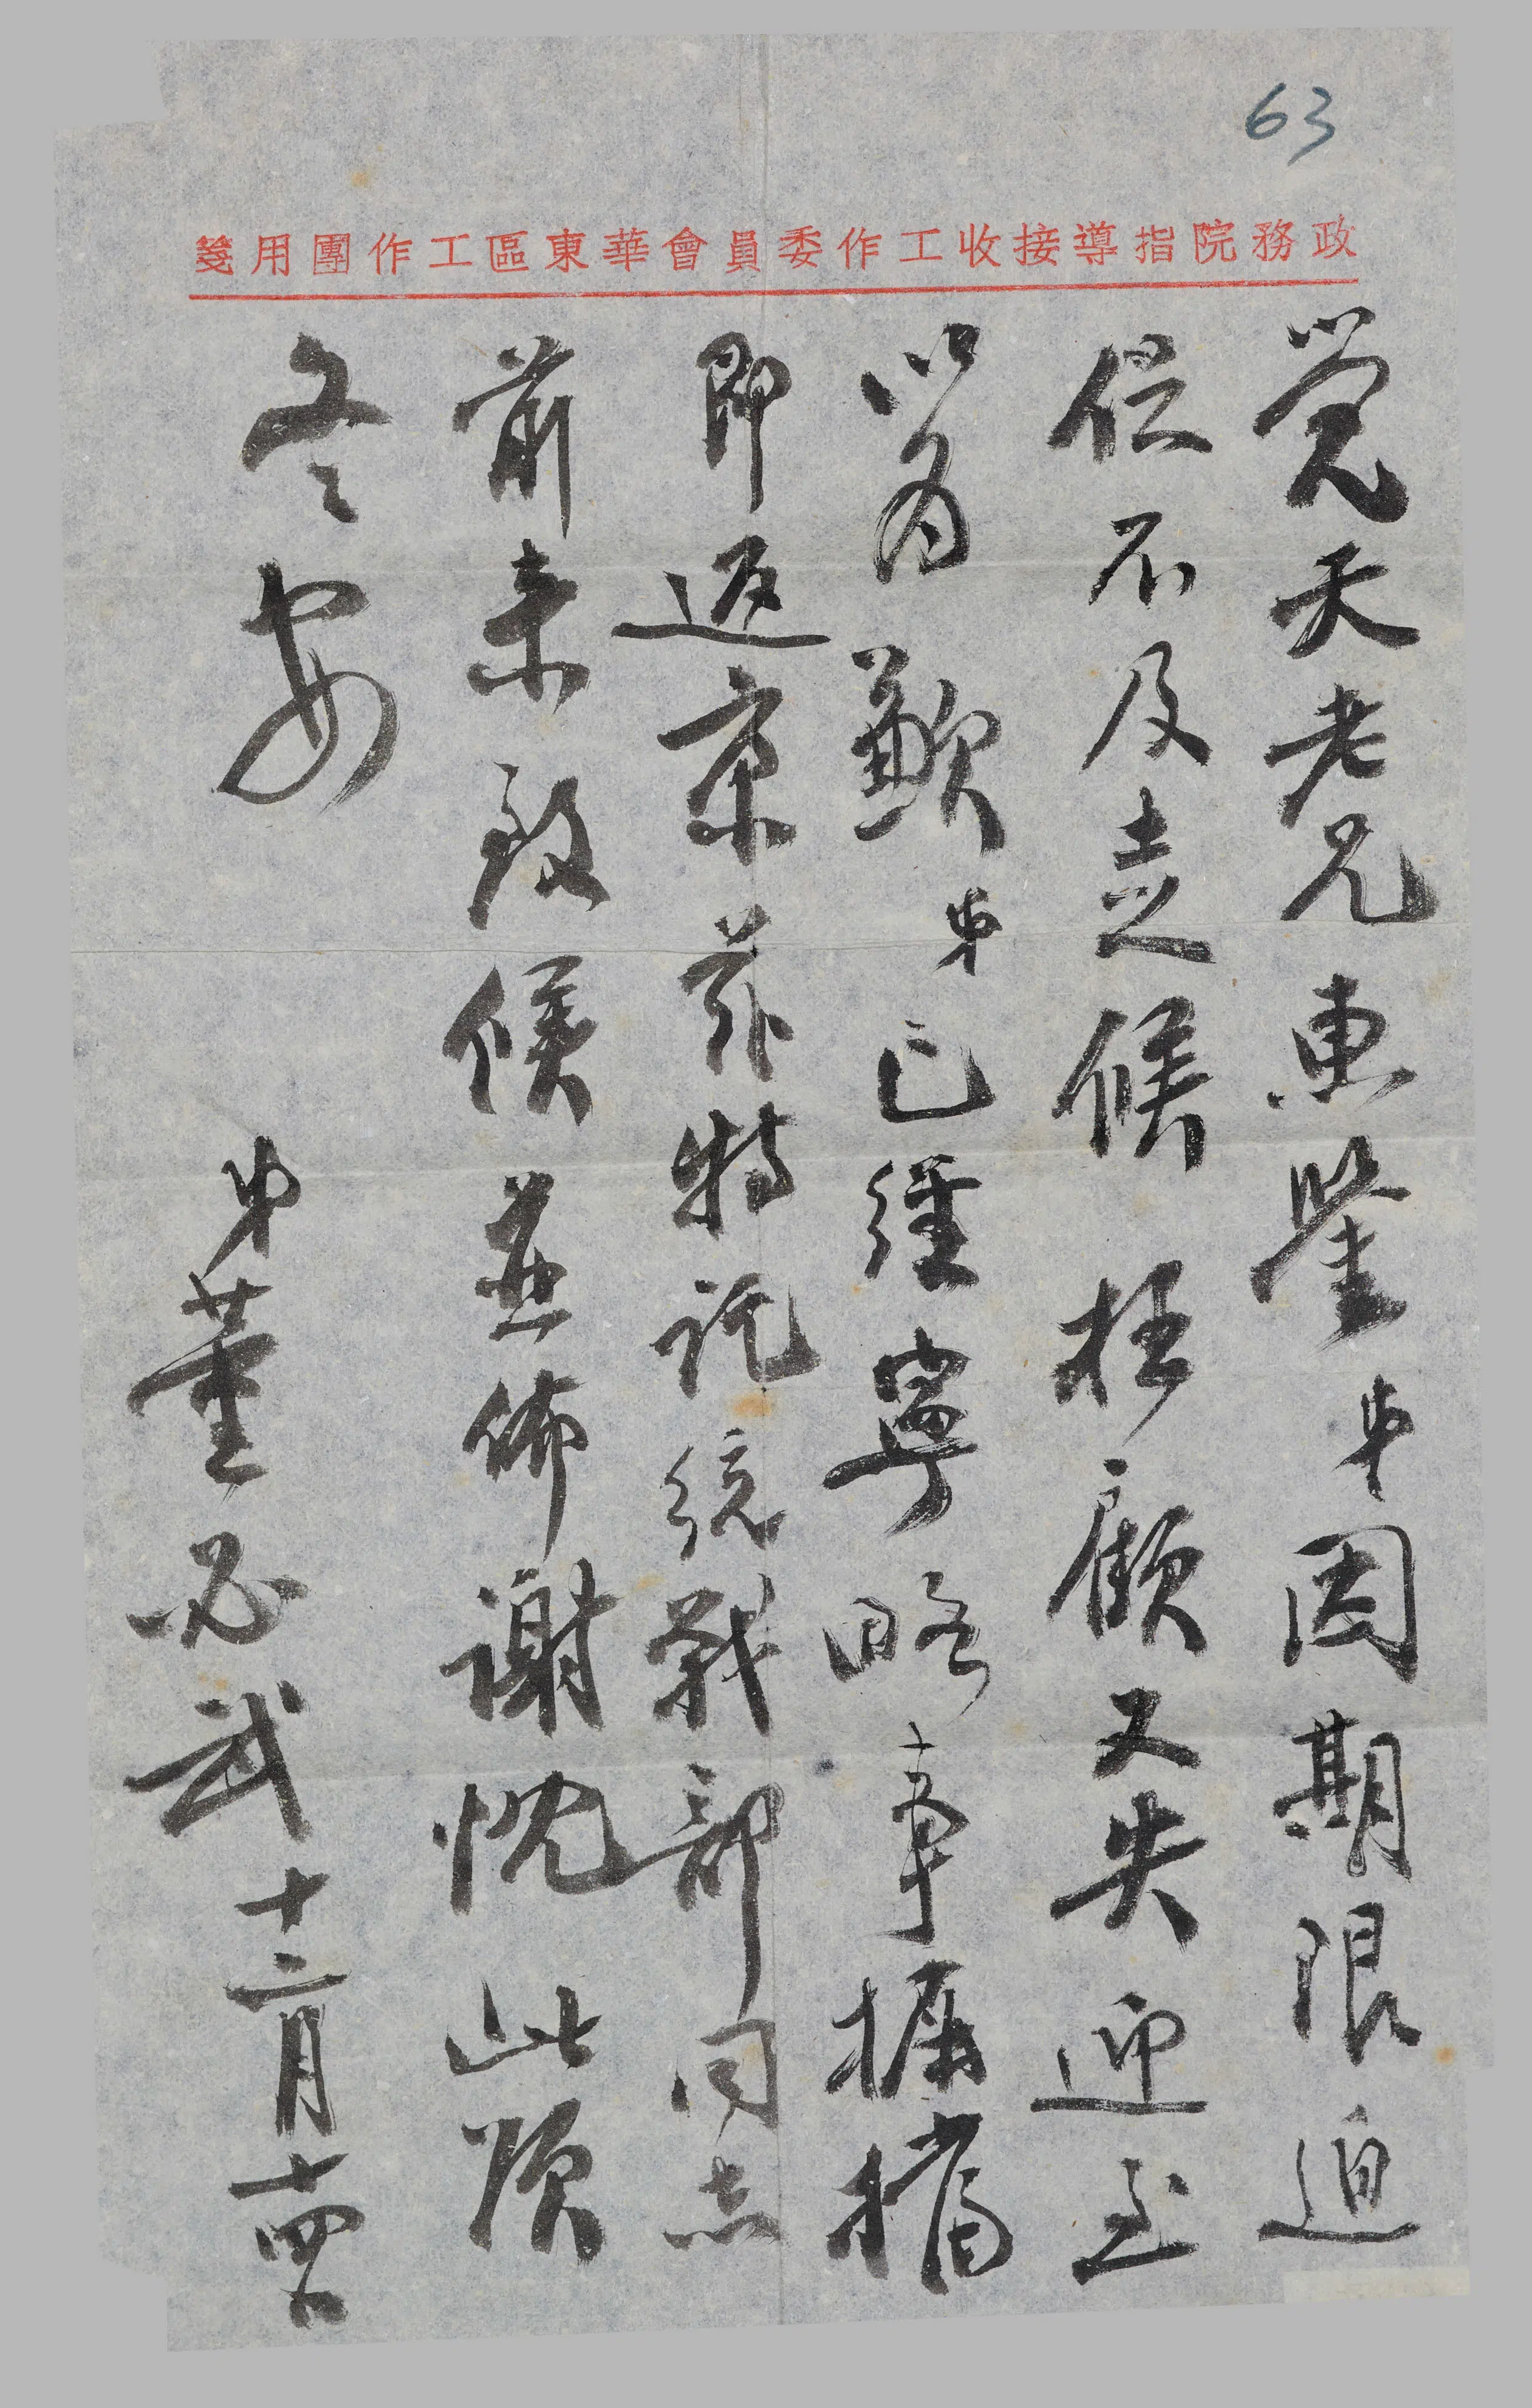 63
政務院指導接收工作委員會華東區工作團用箋
覺天老兄惠鑒弟因期限迫
促不及走候枉顧又失迎至
以為歉弟已經寧略事摒擋
即返京茲特託統戰部同志
前来致候並佈謝忱此頌
冬安
弟董必武十二月十四日